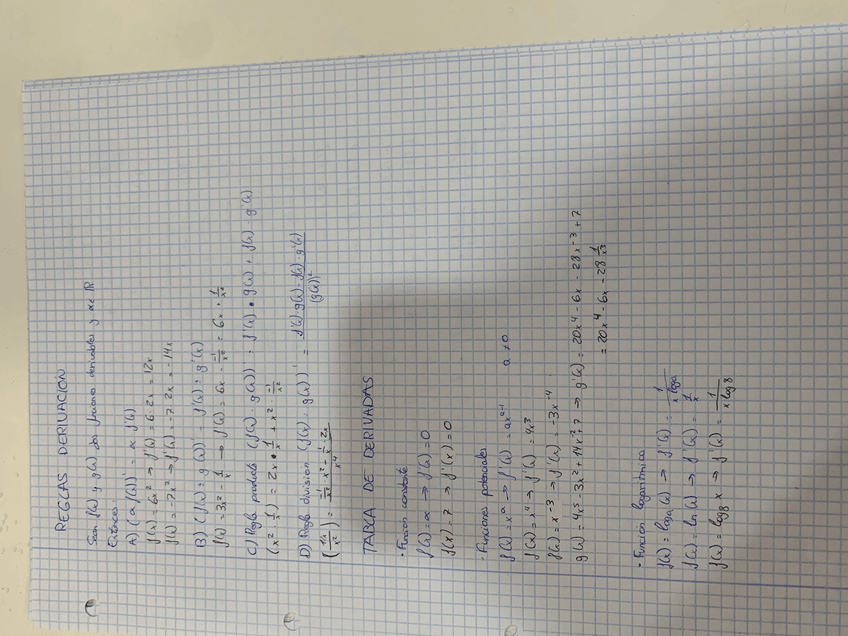 REGLAS DERIVACIÓN
Sean f(x) y g(x) dos funciones derivables y α∈ℝ
Entonces:
A) (α f(x))' = α f'(x)
f(x) = 6x² → f'(x) = 6·2x = 12x
f(x) = -7x² → f'(x) = -7·2x = -14x
B) (f(x) ± g(x))' = f'(x) ± g'(x)
f(x) = 3x² - 1/x → f'(x) = 6x - -1/x² = 6x + 1/x²
C) Regla producto (f(x) · g(x))' = f'(x) · g(x) + f(x) · g'(x)
(x² · 1/x)' = 2x · 1/x + x² · -1/x²
D) Regla división (f(x) : g(x))' = f'(x)·g(x) - f(x)·g'(x) / (g(x))²
(1/x / x²)' = -1/x² · x² - 1/x · 2x / x⁴
TABLA DE DERIVADAS
· Función constante
f(x) = α → f'(x) = 0
f(x) = 7 → f'(x) = 0
· Funciones potenciales
f(x) = xᵃ → f'(x) = axᵃ⁻¹ a ≠ 0
f(x) = x⁴ → f'(x) = 4x³
f(x) = x⁻³ → f'(x) = -3x⁻⁴
g(x) = 4x⁵ - 3x² + 14x⁻² + 7 → g'(x) = 20x⁴ - 6x - 28x⁻³ + 7
= 20x⁴ - 6x - 28 1/x³
· Función logarítmica
f(x) = logₐ(x) → f'(x) = 1/x log a
f(x) = ln(x) → f'(x) = 1/x
f(x) = log₈ x → f'(x) = 1/x log 8